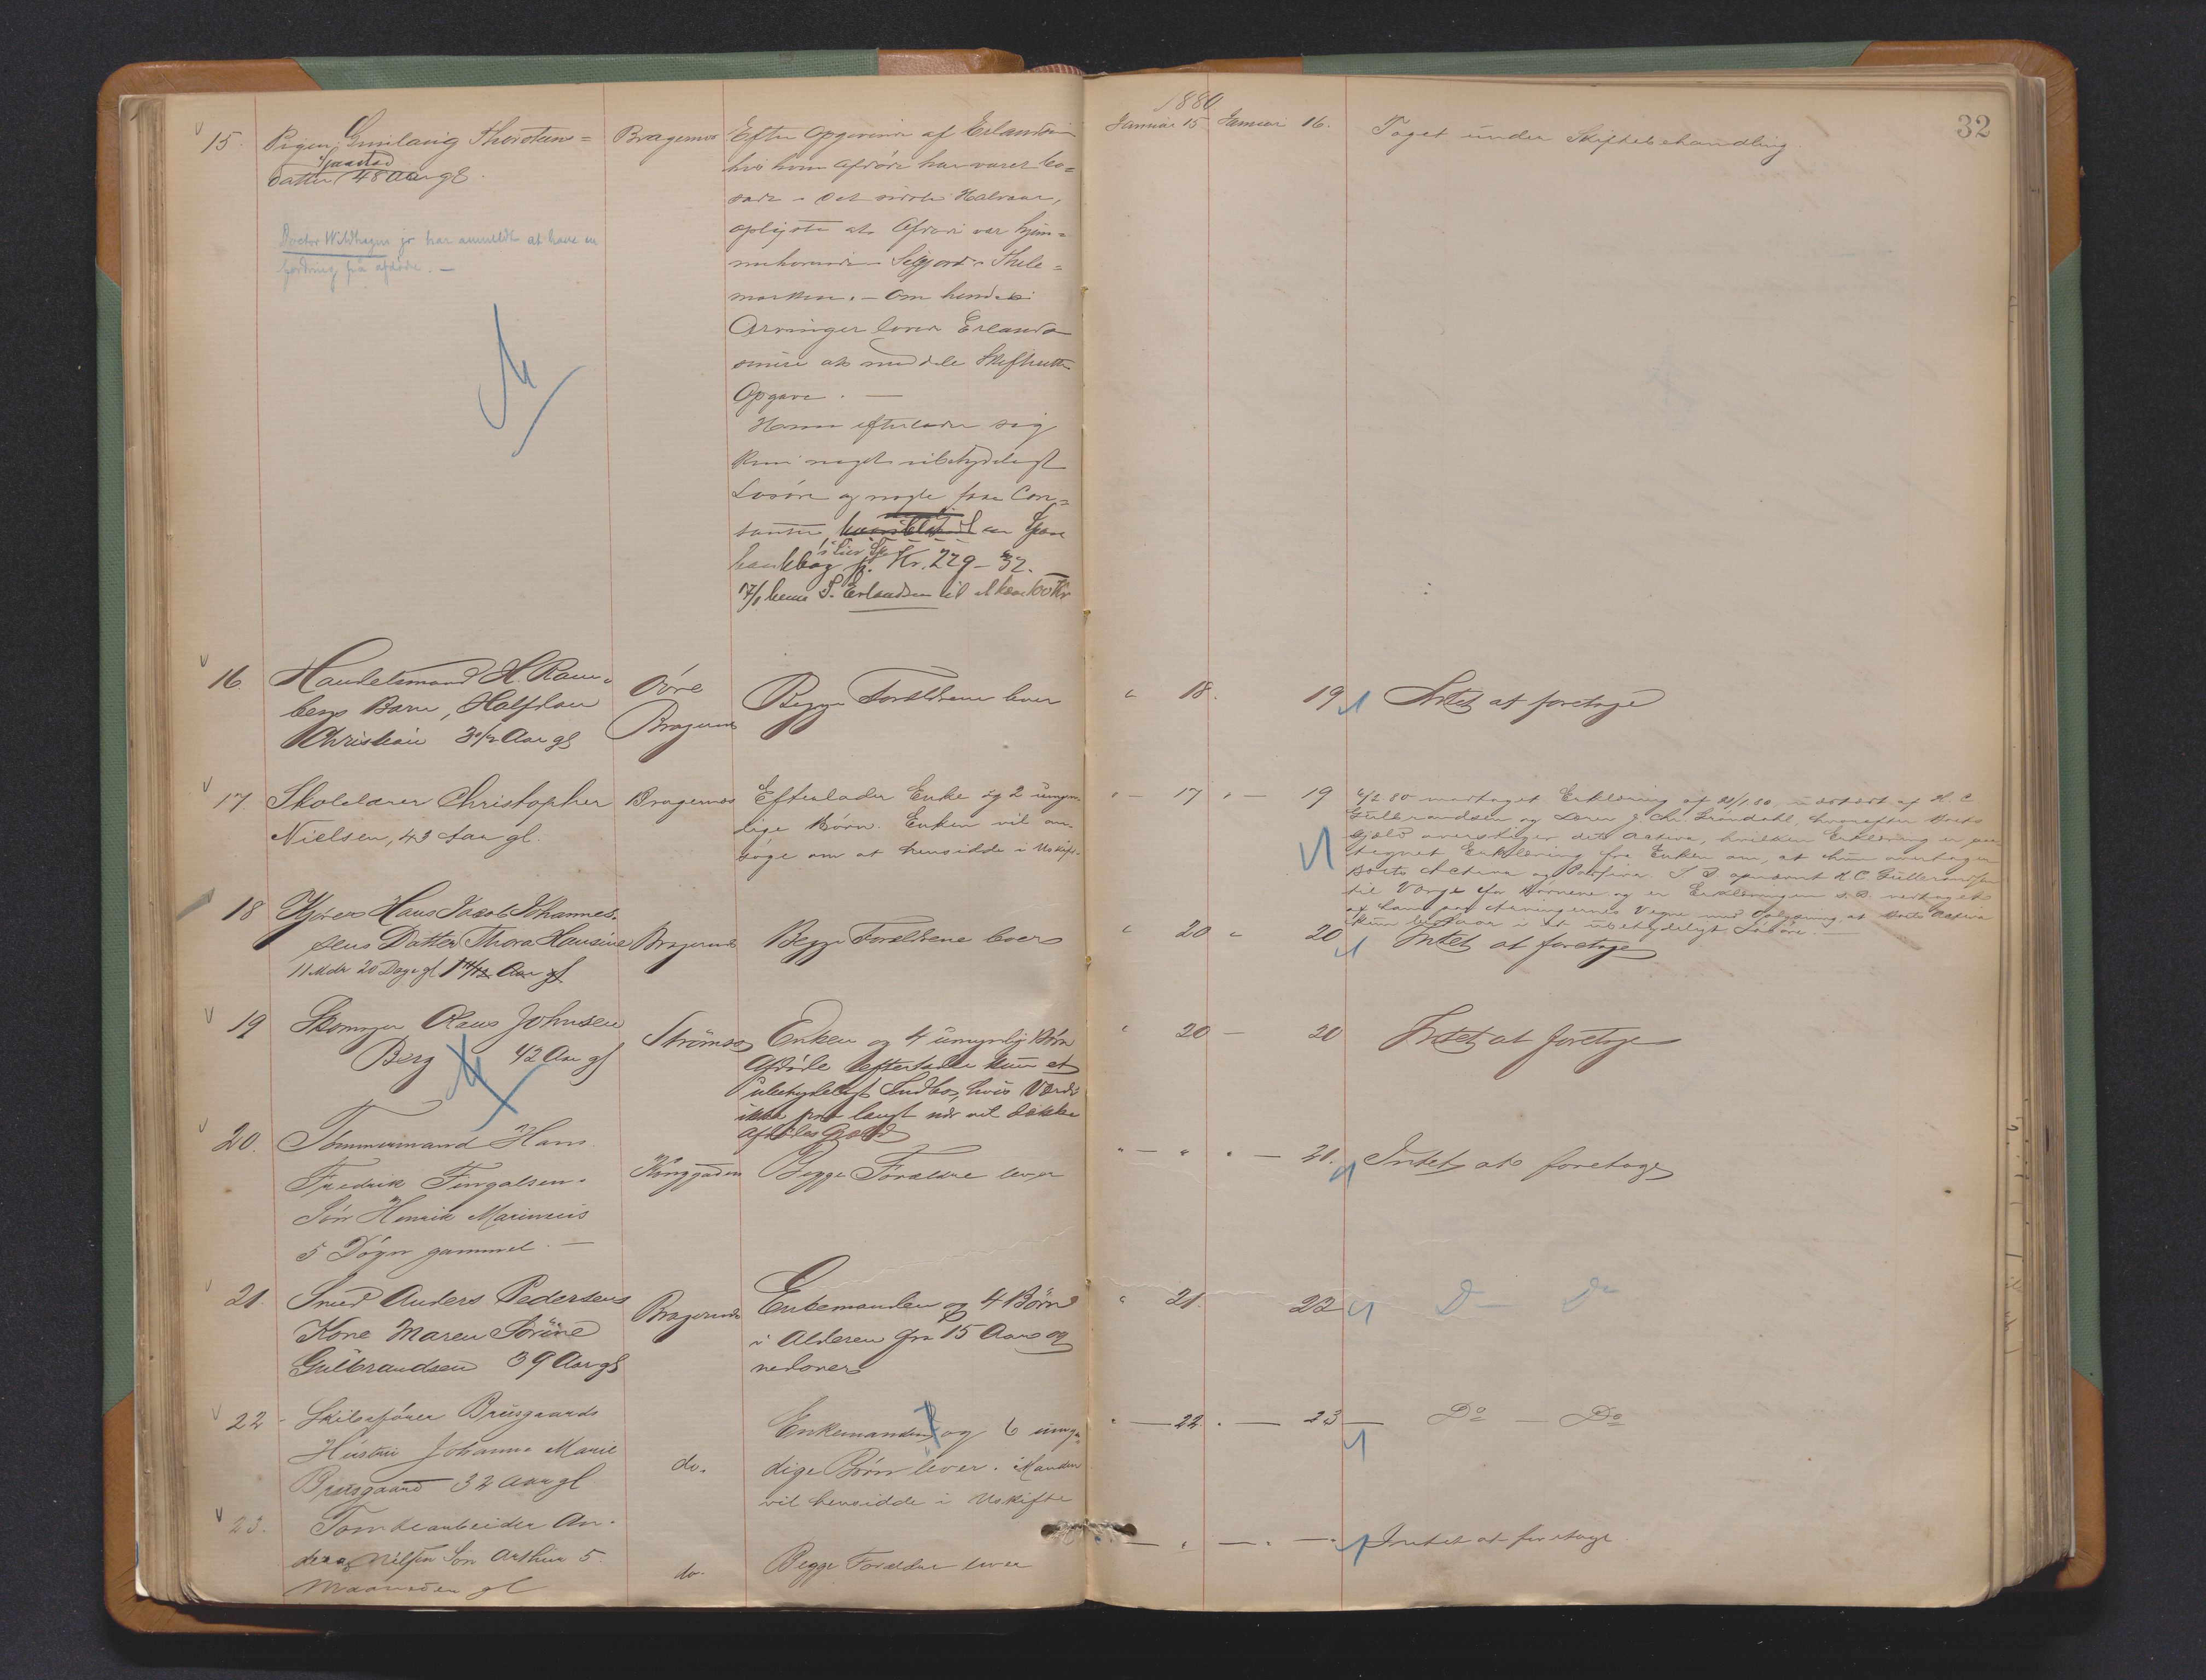 32
1880
15. Pigen Gunlaug Thorstens=
datter 48 Aar gl.
Bragernes
Efter Opgivende af Erlandsen
hos hvem Afdøde har været bo=
sadt i det sidste Halvaar,
oplyste at Afdøde var hjem=
mehørende i Seljord i Thele=
marken. — Om hendes
Arvinger lover Erland
senere at meddele Skifteretten
Opgave. —
Hun efterlader sig
kun noget ubetydeligt
Løsøre og nogle faa Con=
tanter en Spare
bankbog Kr. 229-32.
17/1 Erlandsen til at 60 Kr
Januar 15 Januar 16.
Taget under Skiftebehandling.
Doctor Wildhagen jr har anmeldt at have en
fordring på afdøde. —
16. Handelsmand H. Ram=
bergs Barn, Halfdan
Christian 3 1/2 Aar gl
Øvre
Bragernes
Begge Forældrene lever
" 18. 19
Intet at foretage
17. Skolelærer Christopher
Nielsen, 43 Aar gl.
Bragernes
Efterlader Enke og 2 umyn=
dige Børn. Enken vil an=
søge om at hensidde i Uskifte.
" — 17 " — 19
modtaget Erklæring af 20/1 80, udstedt af H. C.
Gulbrandsen og Søren J. Chr. Grøndahl, hvorefter Boets
Gjæld overstiger dets Activa, hvilken Erklæring er paa
tegnet Erklæring fra Enken om, at hun overtager
Boets Activa og Passiva. S. D. opnævnt H. C. Gulbrandsen
til Værge for Børnene og er Erklæringen s. D. vedtaget
af ham paa Arvingernes Vegne med Oplysning, at Boets Activa
kun bestaar i et ubetydeligt Løsøre. —
18 Kjører Hans Jacob Johannes=
sens Datter Thora Hansine
11 Mdr 20 Dage gl 1 11/12 Aar gl
Bragernes
Begge Forældrene lever
" 20 " 20
Intet at foretage
19 Skomager Olaus Johnsen
Berg 42 Aar gl
Strømsø
Enken og 4 umyndig Børn
Afdøde efterlader kun et
ubetydeligt Indbo, hvis Værdi
ikke paa langt nær vil dække
Afdødes Gjæld
" 20 — 20
Intet at foretage
20. Tømmermand Hans
Fredrik Fingalsen=
Søn Henrik Marinius
5 Døgn gammel. —
Konggaden
Begge Forældre lever
" — " " — 21.
Intet at foretage
21. Smed Anders Pedersens
Kone Maren Sørine
Gulbrandsen 39 Aar gl
Bragernes
Enkemanden og 4 Børn
i Alderen fra 15 Aar og
nedover
" 21. 22
Do — Do
22 Skibsfører Brusgaards
Hustru Johanne Marie
Brusgaard 32 Aar gl
do.
Enkemanden og 6 umyn=
dige Børn lever. Manden
vil hensidde i Uskifte
" — 22. " — 23 —
Do — Do
23. Tomtearbeider An=
ders Nilsen Søn Arthur 5
Maaneder gl
do.
Begge Forældre lever
— " — " —
Intet at foretage.